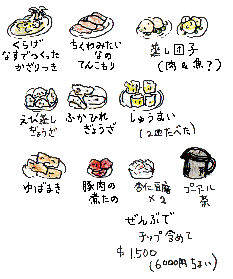 くらげ
なすでつくった
かざりつき
ちくわみたい
なの
てんこもり
蒸し団子
(肉&魚?)
えび蒸し
ぎょうざ
ふかひれ
ぎょうざ
しゅうまい
(2皿たべた)
ゆばまき
豚肉の
煮たの
杏仁豆腐
×2
プーアル
茶
ぜんぶで
チップ含めて
$1,500
(6000円ちょい)